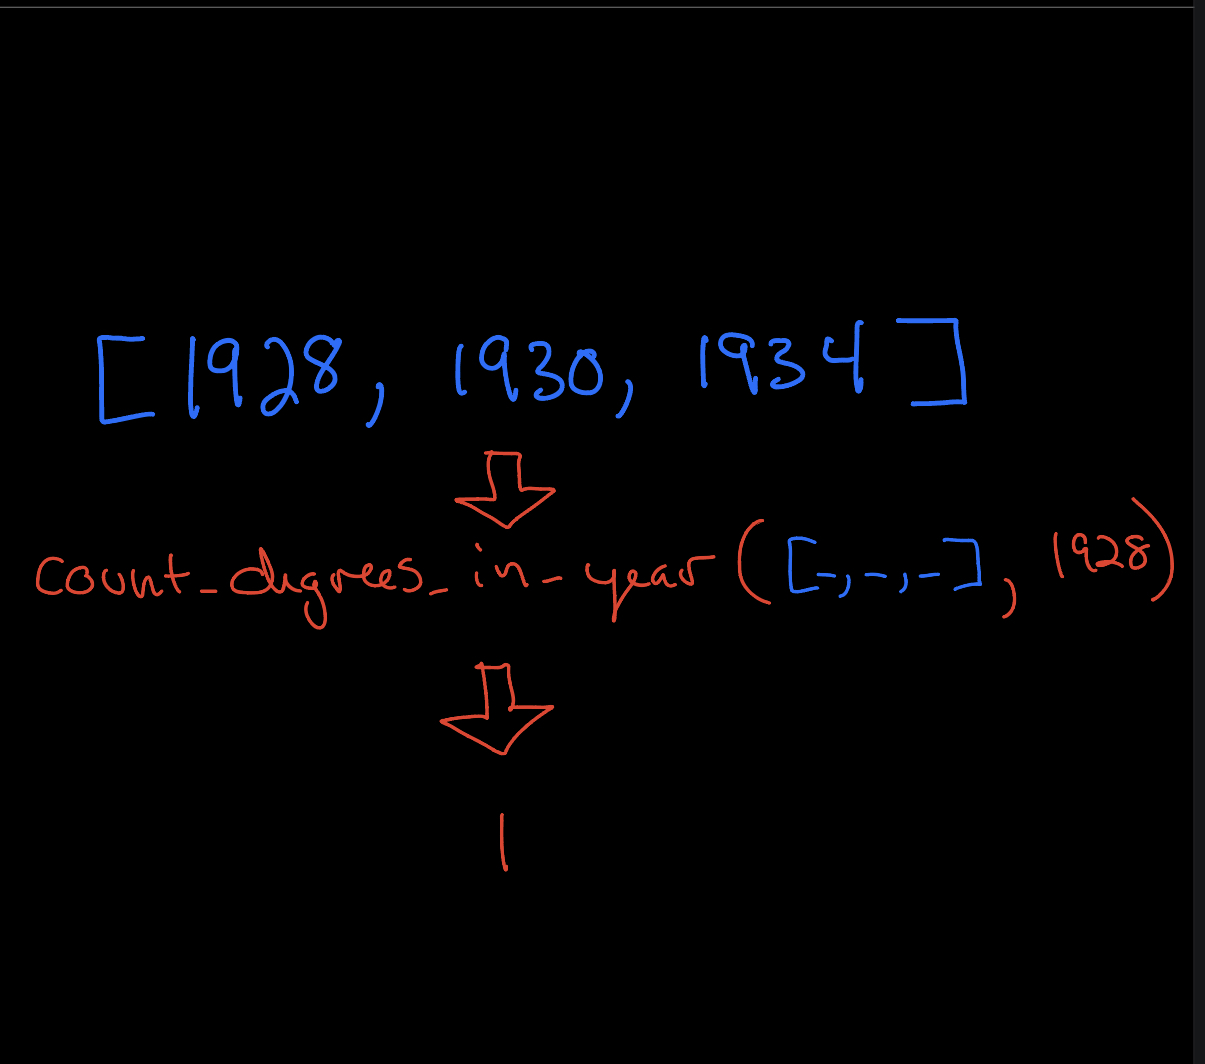 [1928, 1930, 1934]
count_degrees_in_year([_,_,_], 1928)
1